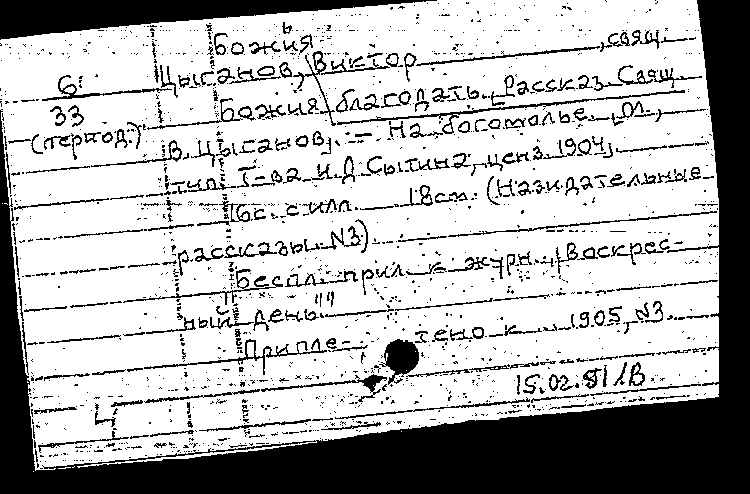 Божия
6
33
(период.)
Цыганов, Виктор, свящ.
Божия благодать. Рассказ. Свящ.
В. Цыганов. — На богомолье.
тип. Т-ва И.Д. Сытина, ценз. 1904.
16с. с илл. 18см. (Назидательные
рассказы. N3).
Беспл. прил. к журн. "Воскрес-
ный день".
Припле- тено к 1905, N3.
15.02.81